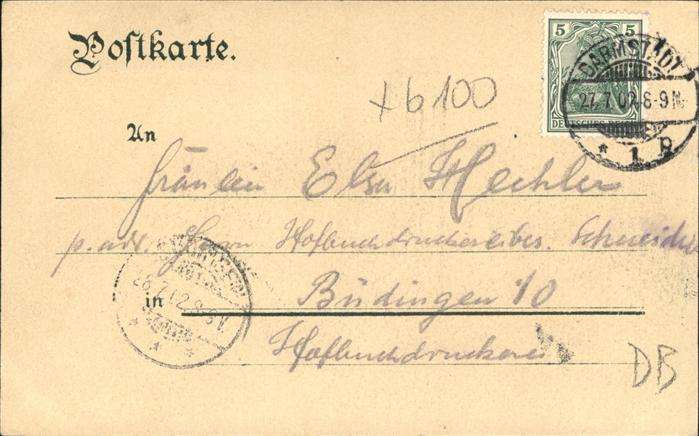 Postkarte.
5 5
DEUTSCHES REICH
DARMSTADT
27.7.02.8-9N.
* 1 P
+6 100
An
Fräulein Elsa Mechler
p. adr. Herrn Hofbuchdruckereibes. Schneider
28.7.02.8-9V.
in Büdingen
Hofbuchdruckerei
DB